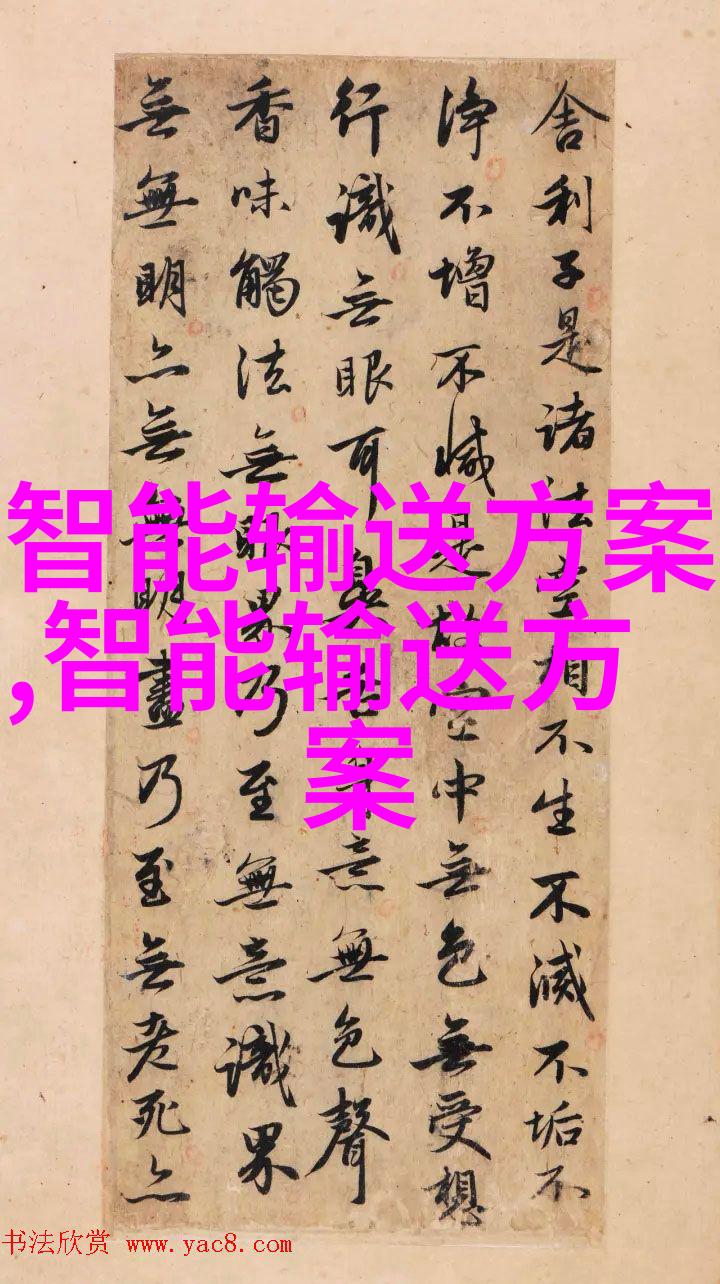 舍利子是諸法空相不生不滅不垢不
淨不增不減是故空中無色無受想
行識無眼耳鼻舌身意無色聲
香味觸法無眼界乃至無意識界
無無明亦無無明盡乃至無老死亦
智能输送方案
,智能输送方
案
书法欣赏 www.yac8.com